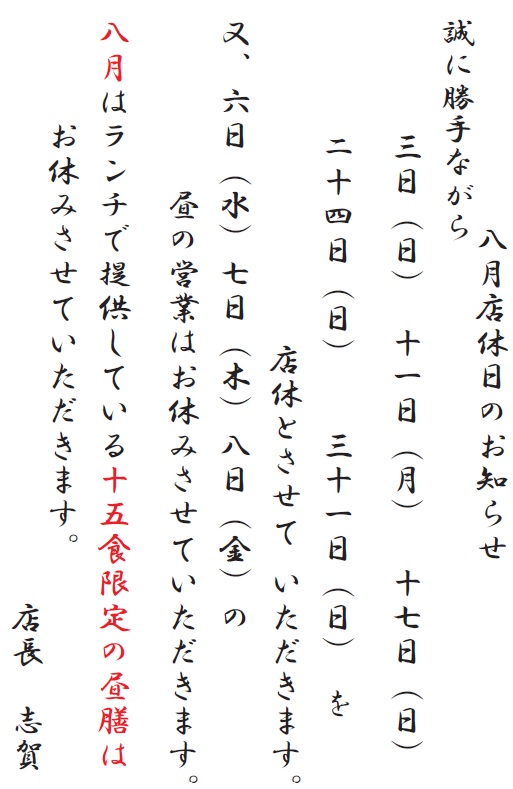 八月店休日のお知らせ
誠に勝手ながら
三日（日）　十一日（月）　十七日（日）
二十四日（日）　三十一日（日）　を
店休とさせて いただきます。
又、六日（水）七日（木）八日（金）の
昼の営業はお休みさせていただきます。
八月はランチで提供している十五食限定の昼膳は
お休みさせていただきます。
店長　志賀